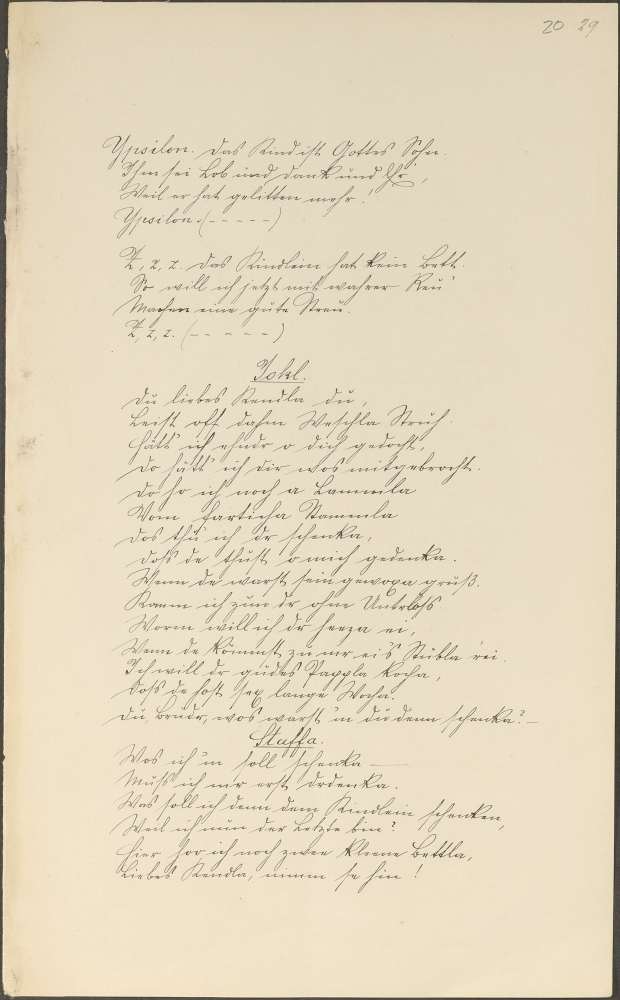 20 29
Ypsilon. Das Kind ist Gottes Sohn.
Ihm sei Lob und Dank und Ehr,
Weil er hat gelitten mehr!
Ypsilon. (- - - - -)
Z, z, z. Das Kindlein hat kein Bett.
So will ich jetzt mit wahrer Reu'
Machen eine gute Streu.
Z, z, z. (- - - - -)
Jokl.
Du liebes Kendla du,
Leist off dahm Weschla Struh.
Hätt' ich ehndr o dich gedocht,
Do hätt' ich dir wos mitgebrocht.
Do ho ich noch a Lammla
Vom Stammla
Dos thu' ich dr schenka,
Doss de thust o mich gedenka.
Wenn de warst sein gewoxa gruß.
Kaum ich zun dr ohne
Worm will ich dr heeza ei,
Wenn de kömmst zu mr ei's Stübla rei.
Ich will dr gudes Pappla kocha,
Doss de host sex lange Wocha.
Du, Brudr, wos warst 'm du denn schenka? –
Staffa.
Wos ich 'm soll schenka –
Muss ich mr erst drdenka.
Was soll ich denn dem Kindlein schenken,
Weil ich nun der Letzte bin?
Hier hor ich noch zwee kleene Bettla,
Liebes Kendla, nimm se hin!